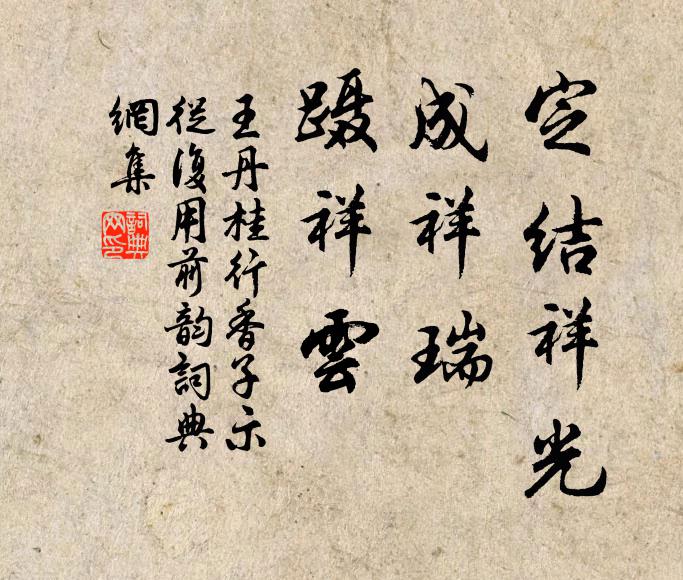 定結祥光
成祥瑞
躡祥雲
王丹桂行香子示
從復用前韵詞典
網集
詞典网印